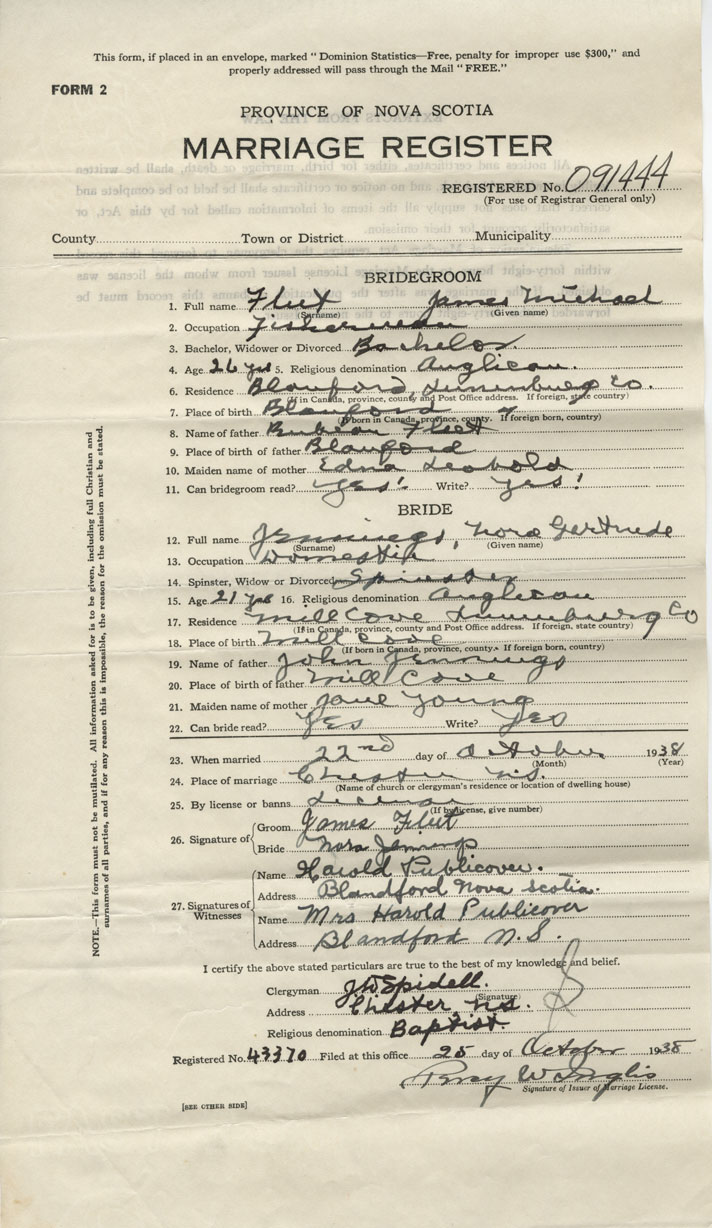 This form, if placed in an envelope, marked "Dominion Statistics—Free, penalty for improper use $300," and
properly addressed will pass through the Mail "FREE."
FORM 2
PROVINCE OF NOVA SCOTIA
MARRIAGE REGISTER
REGISTERED No. 091444
(For use of Registrar General only)
County Town or District Municipality
BRIDEGROOM
1. Full name Fleet James Michael
(Surname) (Given name)
2. Occupation Fisherman
3. Bachelor, Widower or Divorced Bachelor
4. Age 26 yrs 5. Religious denomination Anglican.
6. Residence Blanford, Lunenburg Co.
(If in Canada, province, county and Post Office address. If foreign, state country)
7. Place of birth Blanford
(If born in Canada, province, county. If foreign born, country)
8. Name of father Fleet
9. Place of birth of father Blanford
10. Maiden name of mother Edna Leobold
11. Can bridegroom read? Yes! Write? Yes!
BRIDE
12. Full name Jennings, Nora Gertrude
(Surname) (Given name)
13. Occupation Domestic
14. Spinster, Widow or Divorced Spinster
15. Age 21 yrs 16. Religious denomination Anglican
17. Residence Mill Cove Lunenburg Co
(If in Canada, province, county and Post Office address. If foreign, state country)
18. Place of birth Mill Cove
(If born in Canada, province, county. If foreign born, country)
19. Name of father John Jennings
20. Place of birth of father Mill Cove
21. Maiden name of mother Jane Young
22. Can bride read? Yes Write? Yes
23. When married 22nd day of October 1938
(Month) (Year)
24. Place of marriage Chester N.S.
(Name of church or clergyman's residence or location of dwelling house)
25. By license or banns License
(If by license, give number)
26. Signature of Groom James Fleet
Bride Nora Jennings
27. Signatures of Witnesses
Name Harold Publicover.
Address Blandford Nova Scotia.
Name Mrs Harold Publicover
Address Blandford N.S.
I certify the above stated particulars are true to the best of my knowledge and belief.
Clergyman J W Spidell.
(Signature)
Address Chester N.S.
Religious denomination Baptist.
Registered No. 43370 Filed at this office 25 day of October 1938
Percy W Inglis
Signature of Issuer of Marriage License.
[SEE OTHER SIDE]
NOTE.—This form must not be mutilated. All information asked for is to be given, including full Christian and
surnames of all parties, and if for any reason this is impossible, the reason for the omission must be stated.